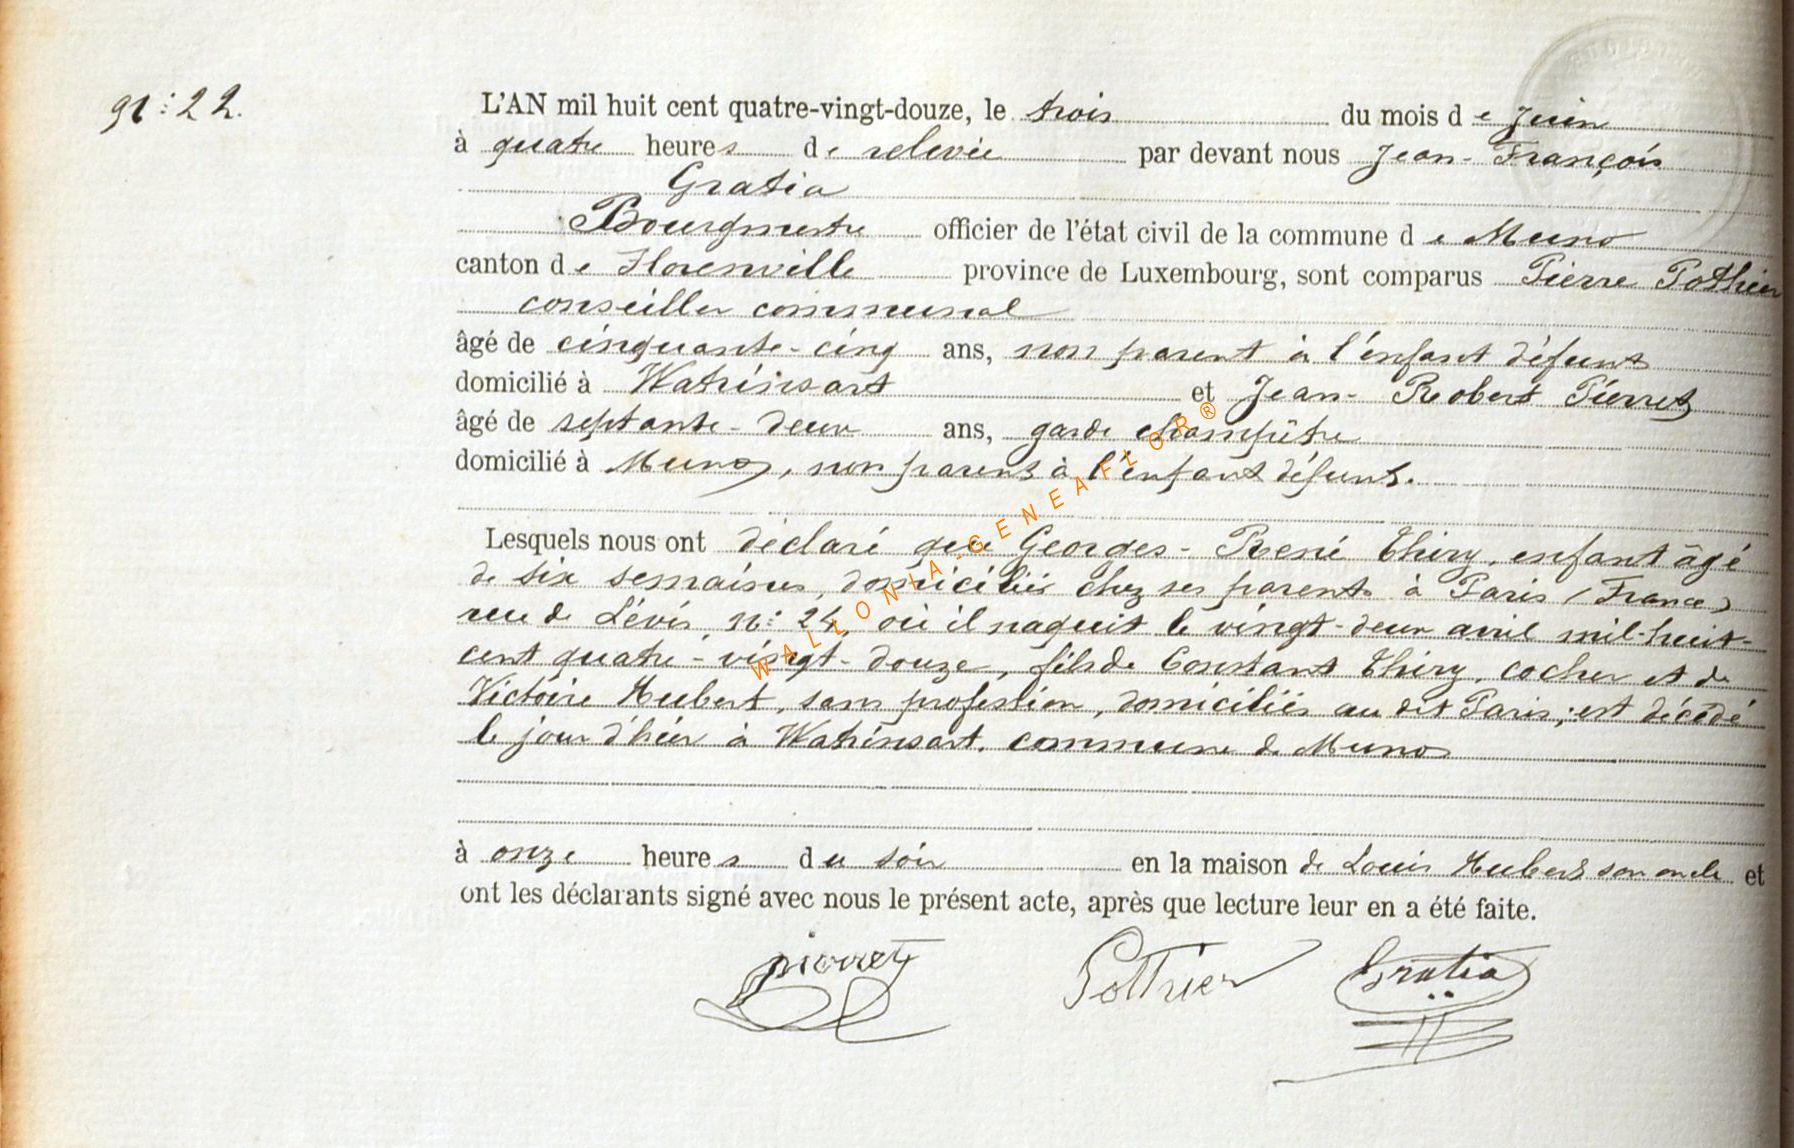 N° 22.
L'AN mil huit cent quatre-vingt-douze, le trois du mois de Juin
à quatre heures de relevée par devant nous Jean-François
Gratia
Bourgmestre officier de l'état civil de la commune de Muno
canton de Florenville province de Luxembourg, sont comparus Pierre Pothier
conseiller communal
âgé de cinquante-cinq ans, non parent à l'enfant défunt
domicilié à Watrinsart et Jean-Robert Pierret
âgé de septante-deux ans, garde champêtre
domicilié à Muno, non parent à l'enfant défunt.
Lesquels nous ont déclaré que Georges-René Thiry, enfant âgé
de six semaines, domicilié chez ses parents à Paris (France)
rue de Lévis, n° 24, où il naquit le vingt-deux avril mil-huit-
cent quatre-vingt-douze, fils de Constant Thiry, cocher et de
Victoire Hubert, sans profession, domiciliés au dit Paris; est décédé
le jour d'hier à Watrinsart, commune de Muno
à onze heures du soir en la maison de Louis Hubert son oncle et
ont les déclarants signé avec nous le présent acte, après que lecture leur en a été faite.
pierret Pothier Gratia
WALLONIA-GENEAFLOR®